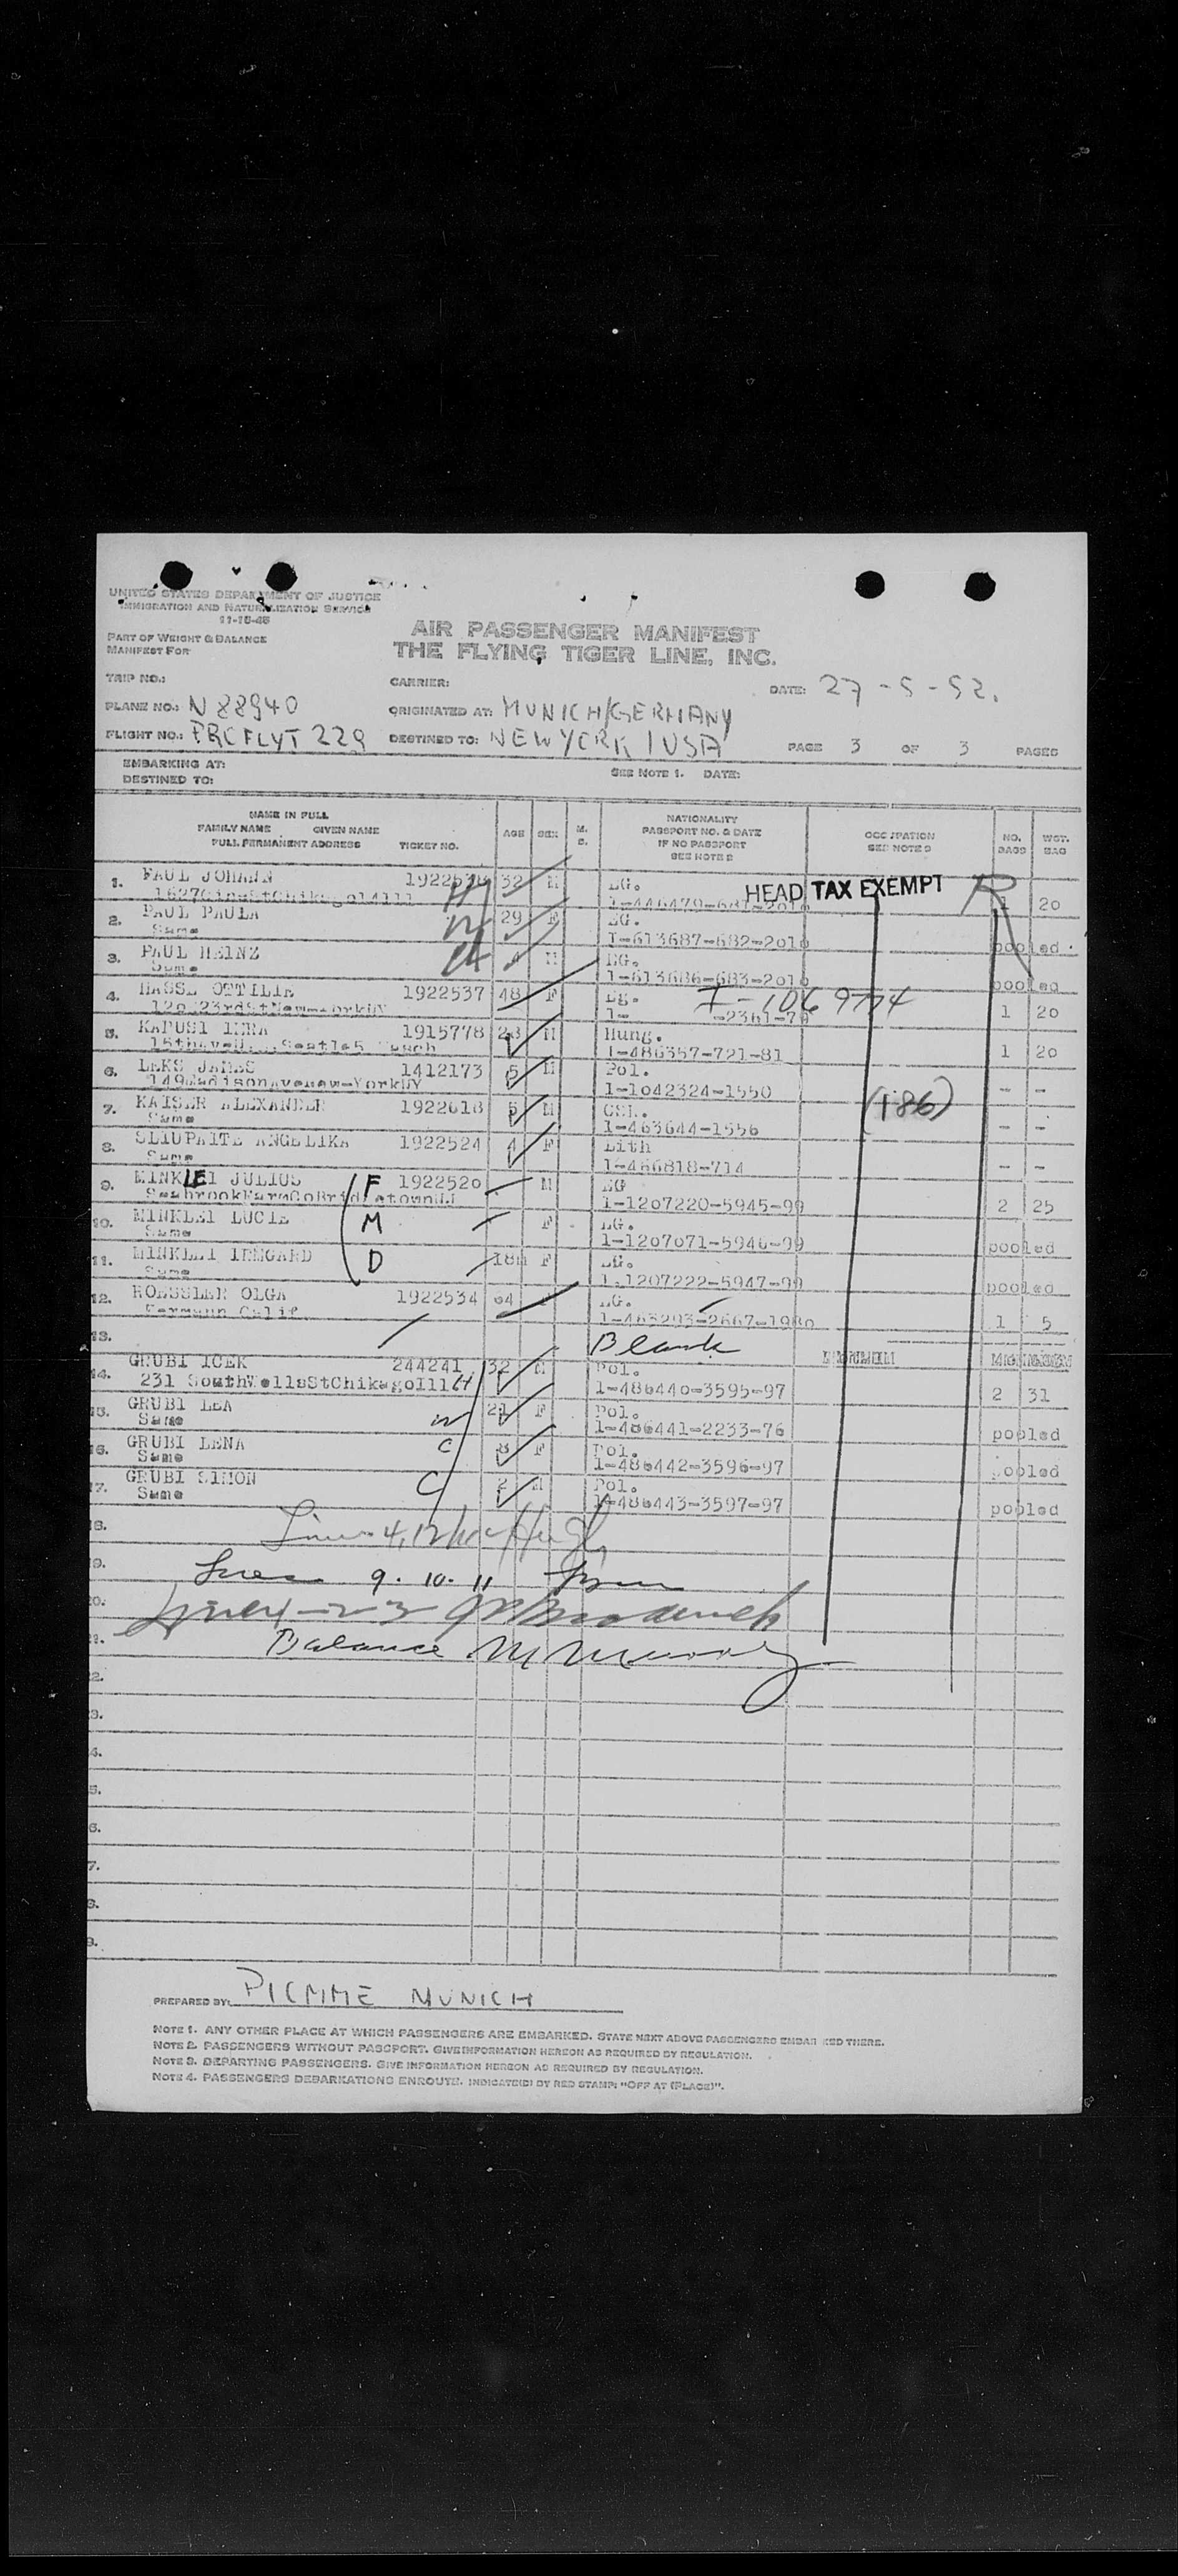 UNITED STATES DEPARTMENT OF JUSTICE
IMMIGRATION AND NATURALIZATION SERVICE
11-15-45
PART OF WEIGHT & BALANCE
MANIFEST FOR
AIR PASSENGER MANIFEST
THE FLYING TIGER LINE, INC.
TRIP NO.: CARRIER: DATE: 27-5-52.
PLANE NO.: N 88940 ORIGINATED AT: MUNICH/GERMANY
FLIGHT NO.: PRCFLYT 229 DESTINED TO: NEWYORK/USA PAGE 3 OF 3 PAGES
EMBARKING AT: SEE NOTE 1. DATE:
DESTINED TO:
NAME IN FULL
FAMILY NAME GIVEN NAME
FULL PERMANENT ADDRESS TICKET NO. AGE SEX M. S. NATIONALITY PASSPORT NO. & DATE IF NO PASSPORT SEE NOTE 2 OCCUPATION SEE NOTE 3 NO. BAGS WGT. BAG
1. PAUL JOHANN 32 M EG. HEAD TAX EXEMPT R 1 20
2. PAUL PAULA W 29 F EG.
Same 1-613687-682-2010 pooled
3. PAUL HEINZ 4 M EG.
Same 1-613686-683-2010 pooled
4. HASSE OTTILIE 1922537 48 F Eg. I-1069774 1 20
5. 1915778 M Hung.
1-486357-721-81 1 20
6. LEKS JAMES 1412173 5 M Pol.
149MadisonAveNew-YorkNY 1-1042324-1550 - -
7. KAISER ALEXANDER 1922618 5 M CSL. (186)
Same 1-463644-1556 - -
8. SLIUPAITE ANGELIKA 1922524 4 F Lith
Same 1-486818-714 - -
9. MINKLEI JULIUS F 1922520 M EG
1-1207220-5945-99 2 25
10. MINKLEI LUCIE M F EG.
Same 1-1207071-5946-99 pooled
11. MINKLEI IRMGARD D 18m F EG.
Same 1-1207222-5947-99 pooled
12. ROESSLER OLGA 1922534 64 EG.
Calif. 1 5
13. Blank
14. GRUBI ICEK 244241 32 M Pol.
231 SouthWellsStChikagoIll H 1-486440-3595-97 2 31
15. GRUBI LEA W 21 F Pol.
Same 1-486441-2233-76 pooled
16. GRUBI LENA C 8 F Pol.
Same 1-486442-3596-97 pooled
17. GRUBI SIMON C 2 M Pol.
Same 1-486443-3597-97 pooled
18. 4, 12
19. 9. 10. 11
20.
21. Balance
22.
23.
24.
25.
26.
27.
28.
29.
PREPARED BY: MUNICH
NOTE 1. ANY OTHER PLACE AT WHICH PASSENGERS ARE EMBARKED. STATE NEXT ABOVE PASSENGERS EMBARKED THERE.
NOTE 2. PASSENGERS WITHOUT PASSPORT. GIVE INFORMATION HEREON AS REQUIRED BY REGULATION.
NOTE 3. DEPARTING PASSENGERS. GIVE INFORMATION HEREON AS REQUIRED BY REGULATION.
NOTE 4. PASSENGERS DEBARKATIONS ENROUTE. INDICATE(D) BY RED STAMP: "OFF AT (PLACE)".